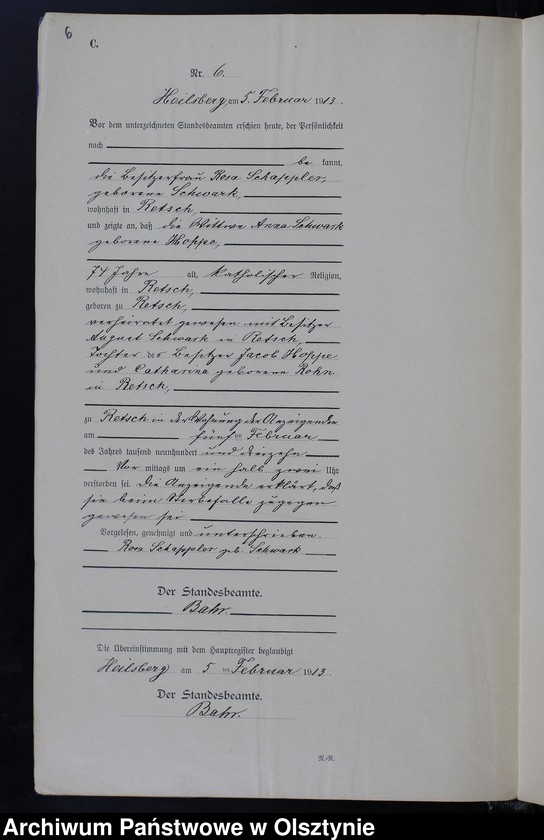 6
C.
Nr. 6.
Heilsberg, am 5. Februar 1913.
Vor dem unterzeichneten Standesbeamten erschien heute, der Persönlichkeit
nach
be kannt,
die Besitzerfrau Rosa Schappler,
geborene Schwark,
wohnhaft in Retsch,
und zeigte an, daß die Wittwe Anna Schwark
geborene Hoppe,
74 Jahre alt, katholischer Religion,
wohnhaft in Retsch,
geboren zu Retsch,
verheiratet gewesen mit Besitzer
August Schwark in Retsch,
Tochter des Besitzer Jacob Hoppe
und Catharina geborene Rohn
in Retsch,
zu Retsch in der Wohnung der Anzeigenden
am fünften Februar
des Jahres tausend neunhundert und dreizehn
Vor mittags um ein halb zwei Uhr
verstorben sei. Die Anzeigende erklärt, daß
sie beim Sterbefalle zugegen
gewesen sei.
Vorgelesen, genehmigt und unterschrieben.
Rosa Schappler geb. Schwark
Der Standesbeamte.
Bahr.
Die Übereinstimmung mit dem Hauptregister beglaubigt
Heilsberg am 5 ten Februar 1913.
Der Standesbeamte.
Bahr.
N.-R.
Archiwum Państwowe w Olsztynie